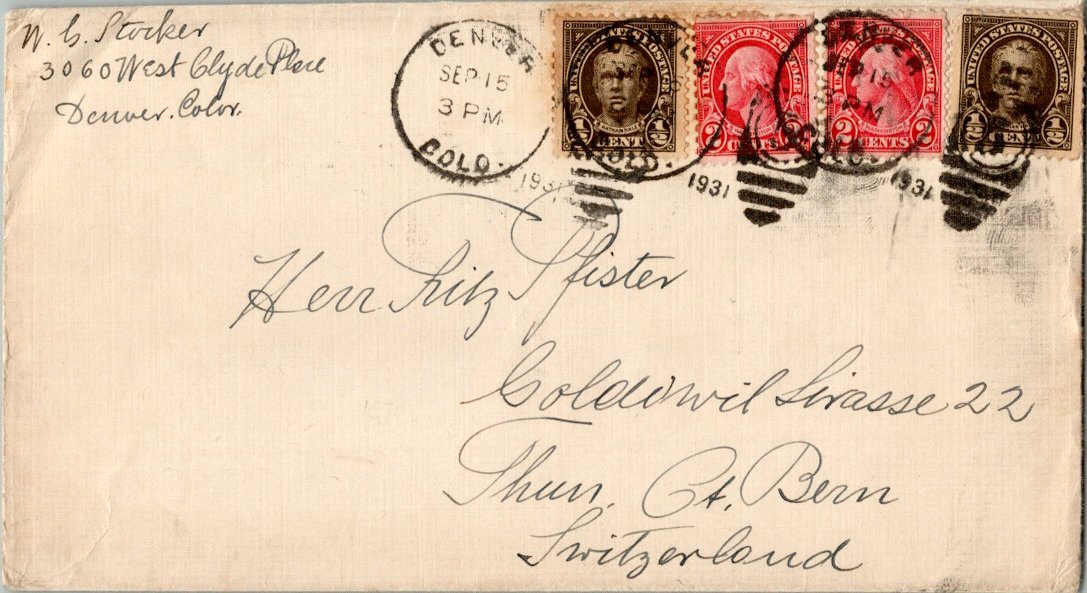 W. G. Stocker
3060 West Clyde Place
Denver. Color.
DENVER
SEP 15
3 PM
COLO.
1931
UNITED STATES POSTAGE
1/2 CENT 1/2
UNITED STATES POSTAGE
2 CENTS 2
1931
UNITED STATES POSTAGE
2 CENTS 2
DENVER
SEP 15
3 PM
1931
UNITED STATES POSTAGE
1/2 CENT 1/2
Herr Fritz Pfister
Goldiwil Strasse 22
Thun, Ct. Bern
Switzerland